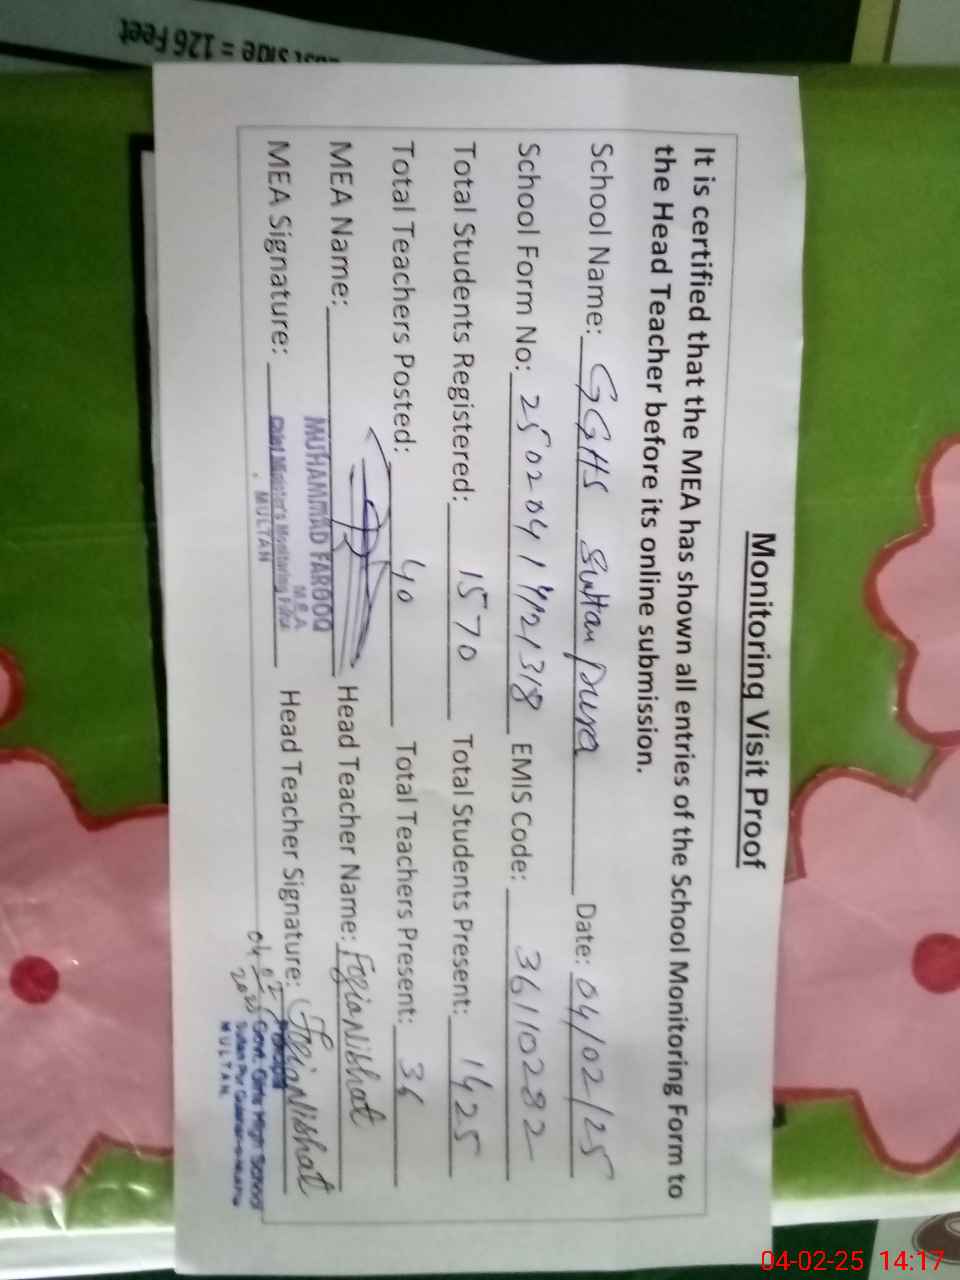 Monitoring Visit Proof
It is certified that the MEA has shown all entries of the School Monitoring Form to
the Head Teacher before its online submission.
School Name: GGHS Sultan pura Date: 04/02/25
School Form No: EMIS Code: 36110282
Total Students Registered: 1570 Total Students Present: 1425
Total Teachers Posted: 40 Total Teachers Present: 36
MEA Name: Head Teacher Name: Fozia Nishat
MEA Signature: Head Teacher Signature: Fozia Nishat
MUHAMMAD FAROOQ
M.E.A
Chief Minister's Monitoring Force
MULTAN
04 02 2025
Principal
Govt. Girls High School
MULTAN
= 126 Feet
04-02-25 14:17